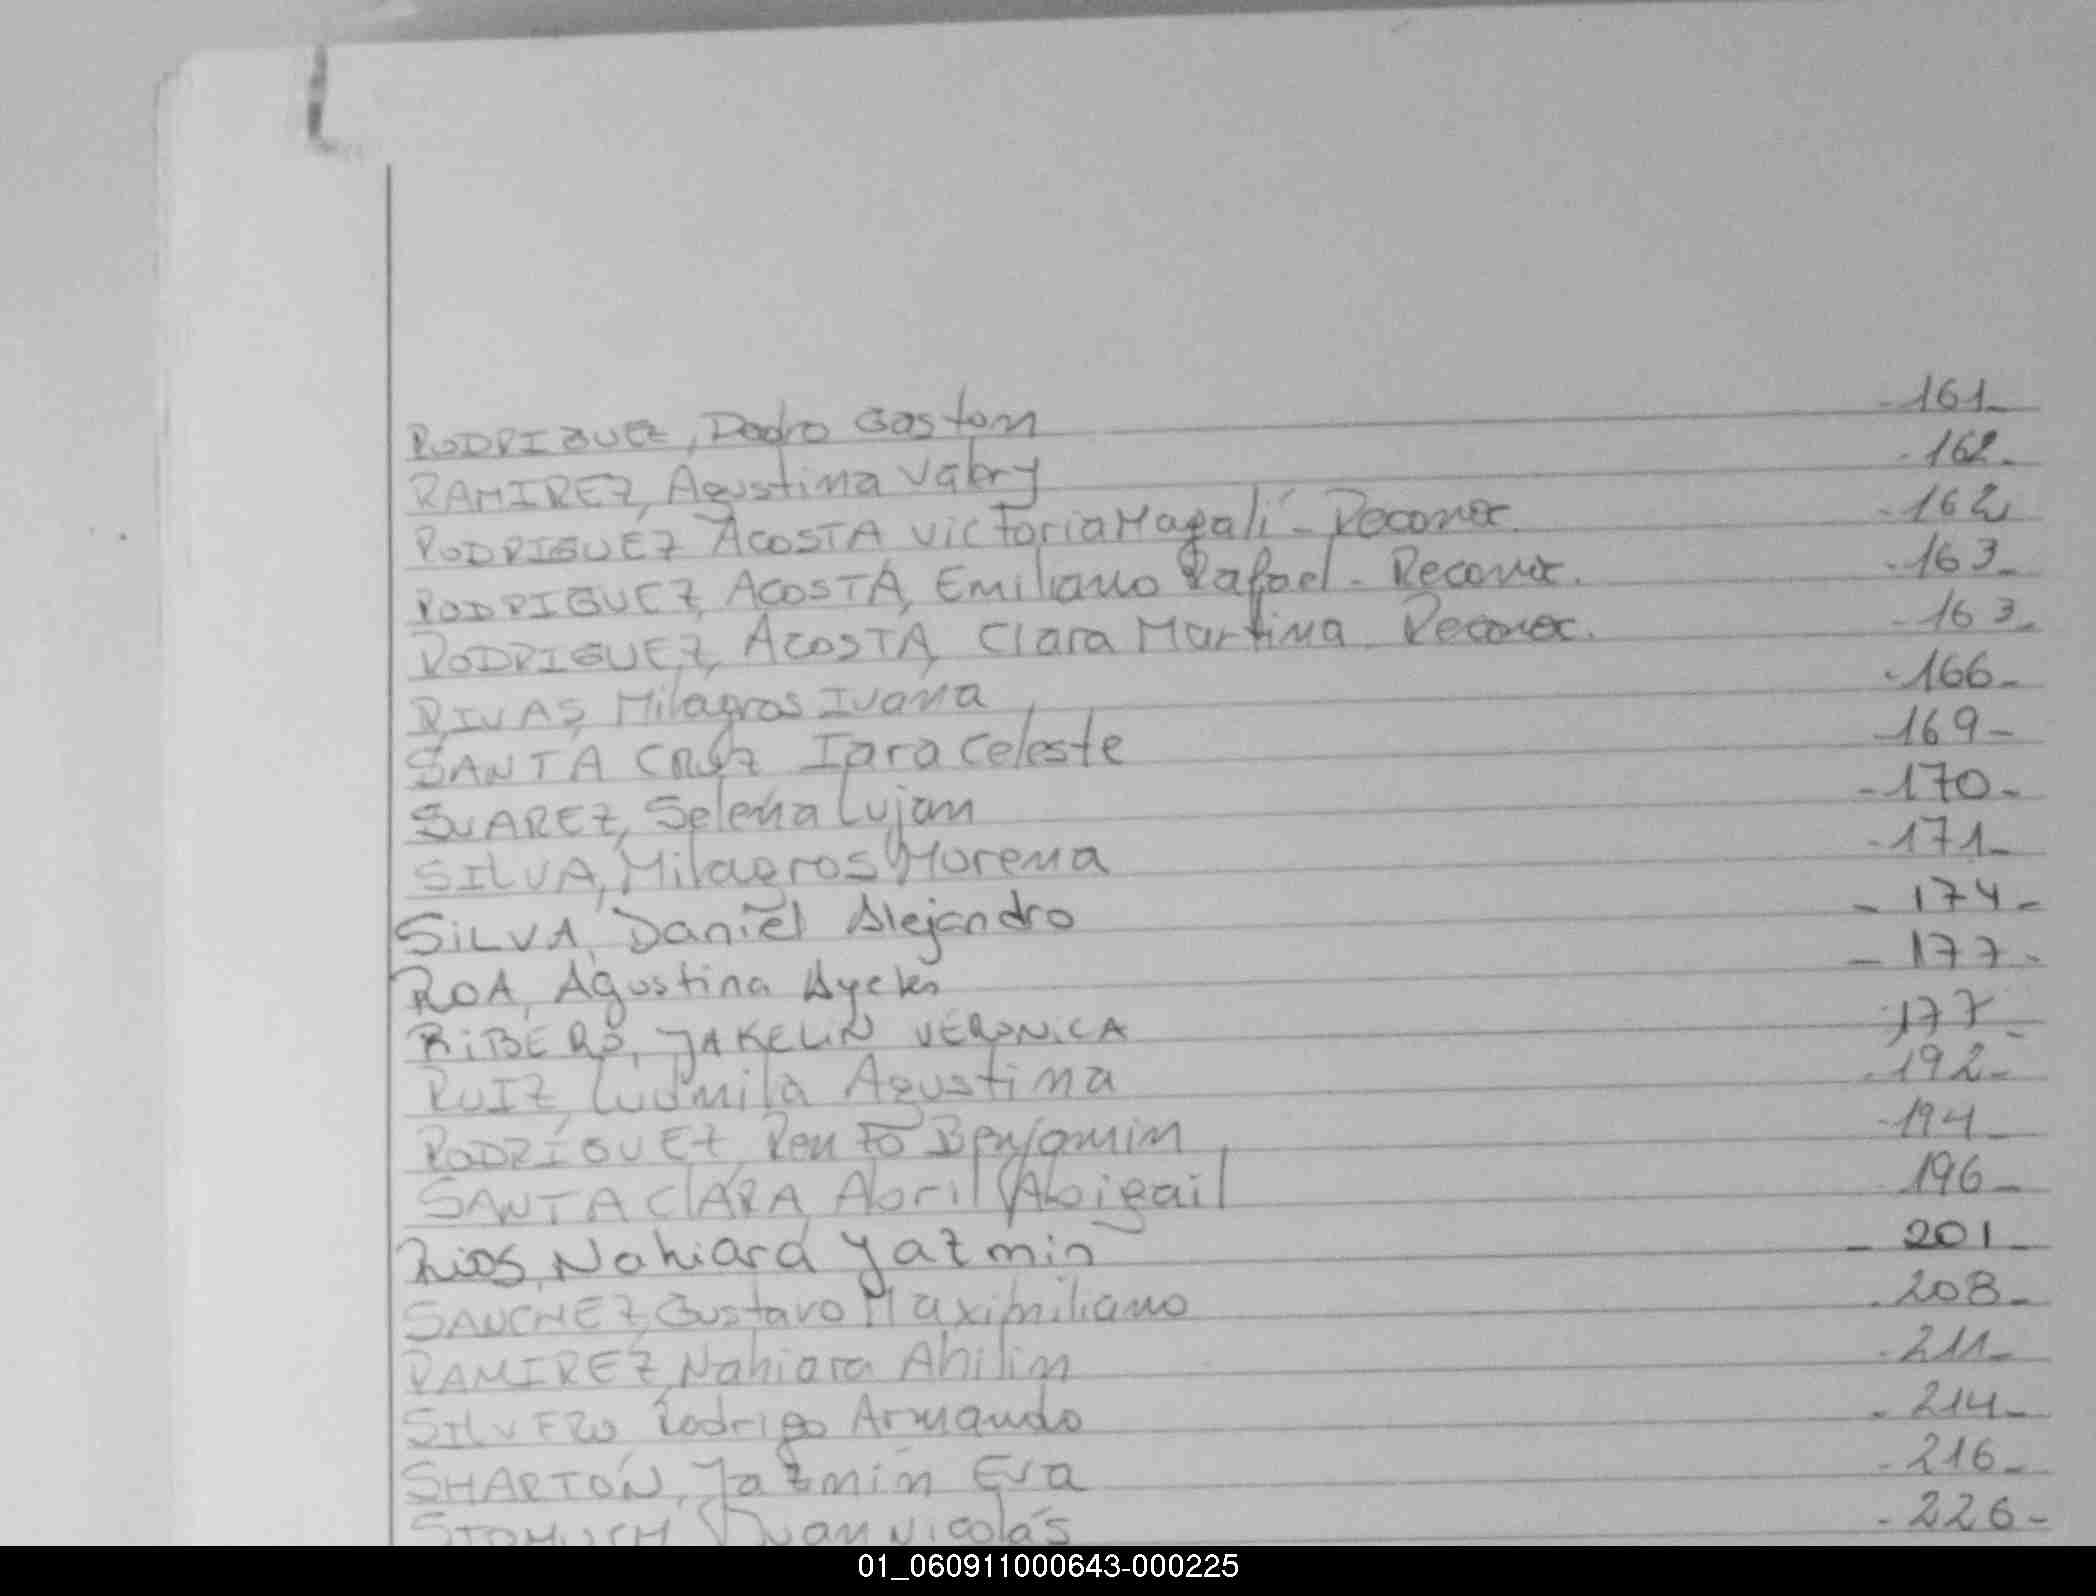 RODRIGUEZ, Pedro Gaston -161-
RAMIREZ, Agustina Valery -162-
RODRIGUEZ ACOSTA Victoria Magalí - Reconoc. -162-
RODRIGUEZ, ACOSTA, Emiliano Rafael - Reconoc. -163-
RODRIGUEZ, ACOSTA, Clara Martina Reconoc. -163-
RIVAS, Milagros Ivana -166-
SANTA CRUZ Iara Celeste -169-
SUAREZ, Selena Lujan -170-
SILVA, Milagros Morena -171-
SILVA, Daniel Alejandro - 174 -
ROA, Agustina Ayelen - 177 -
RIBERO, JAKELIN VERONICA -177-
RUIZ, Ludmila Agustina -192-
RODRÍGUEZ, Renzo Benjamin -194-
SANTA CLARA, Abril Abigail 196-
Rios, Nahiara Yazmin - 201 -
SANCHEZ, Gustavo Maximiliano -208-
RAMIREZ, Nahiara Ahilin -211-
SILVERO Rodrigo Armando - 214-
SHARTON, Yazmín Eva -216-
Juan Nicolás - 226 -
01_060911000643-000225